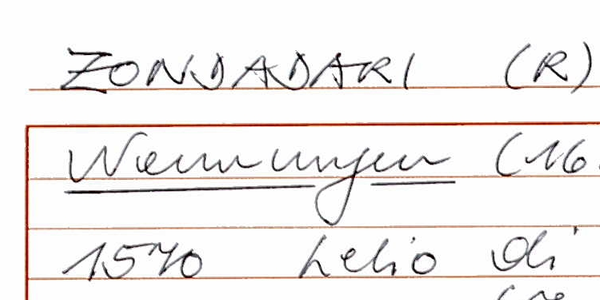 ZONDADARI (R)
Nennungen (16
1570 Lelio di